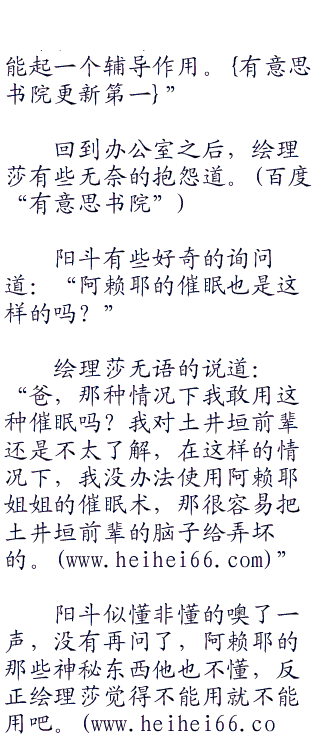 能起一个辅导作用。{有意思
书院更新第一}”
回到办公室之后，绘理
莎有些无奈的抱怨道。(百度
“有意思书院”)
阳斗有些好奇的询问
道：“阿赖耶的催眠也是这
样的吗？”
绘理莎无语的说道：
“爸，那种情况下我敢用这
种催眠吗？我对土井垣前辈
还是不太了解，在这样的情
况下，我没办法使用阿赖耶
姐姐的催眠术，那很容易把
土井垣前辈的脑子给弄坏
的。(www.heihei66.com)”
阳斗似懂非懂的噢了一
声，没有再问了，阿赖耶的
那些神秘东西他也不懂，反
正绘理莎觉得不能用就不能
用吧。(www.heihei66.co